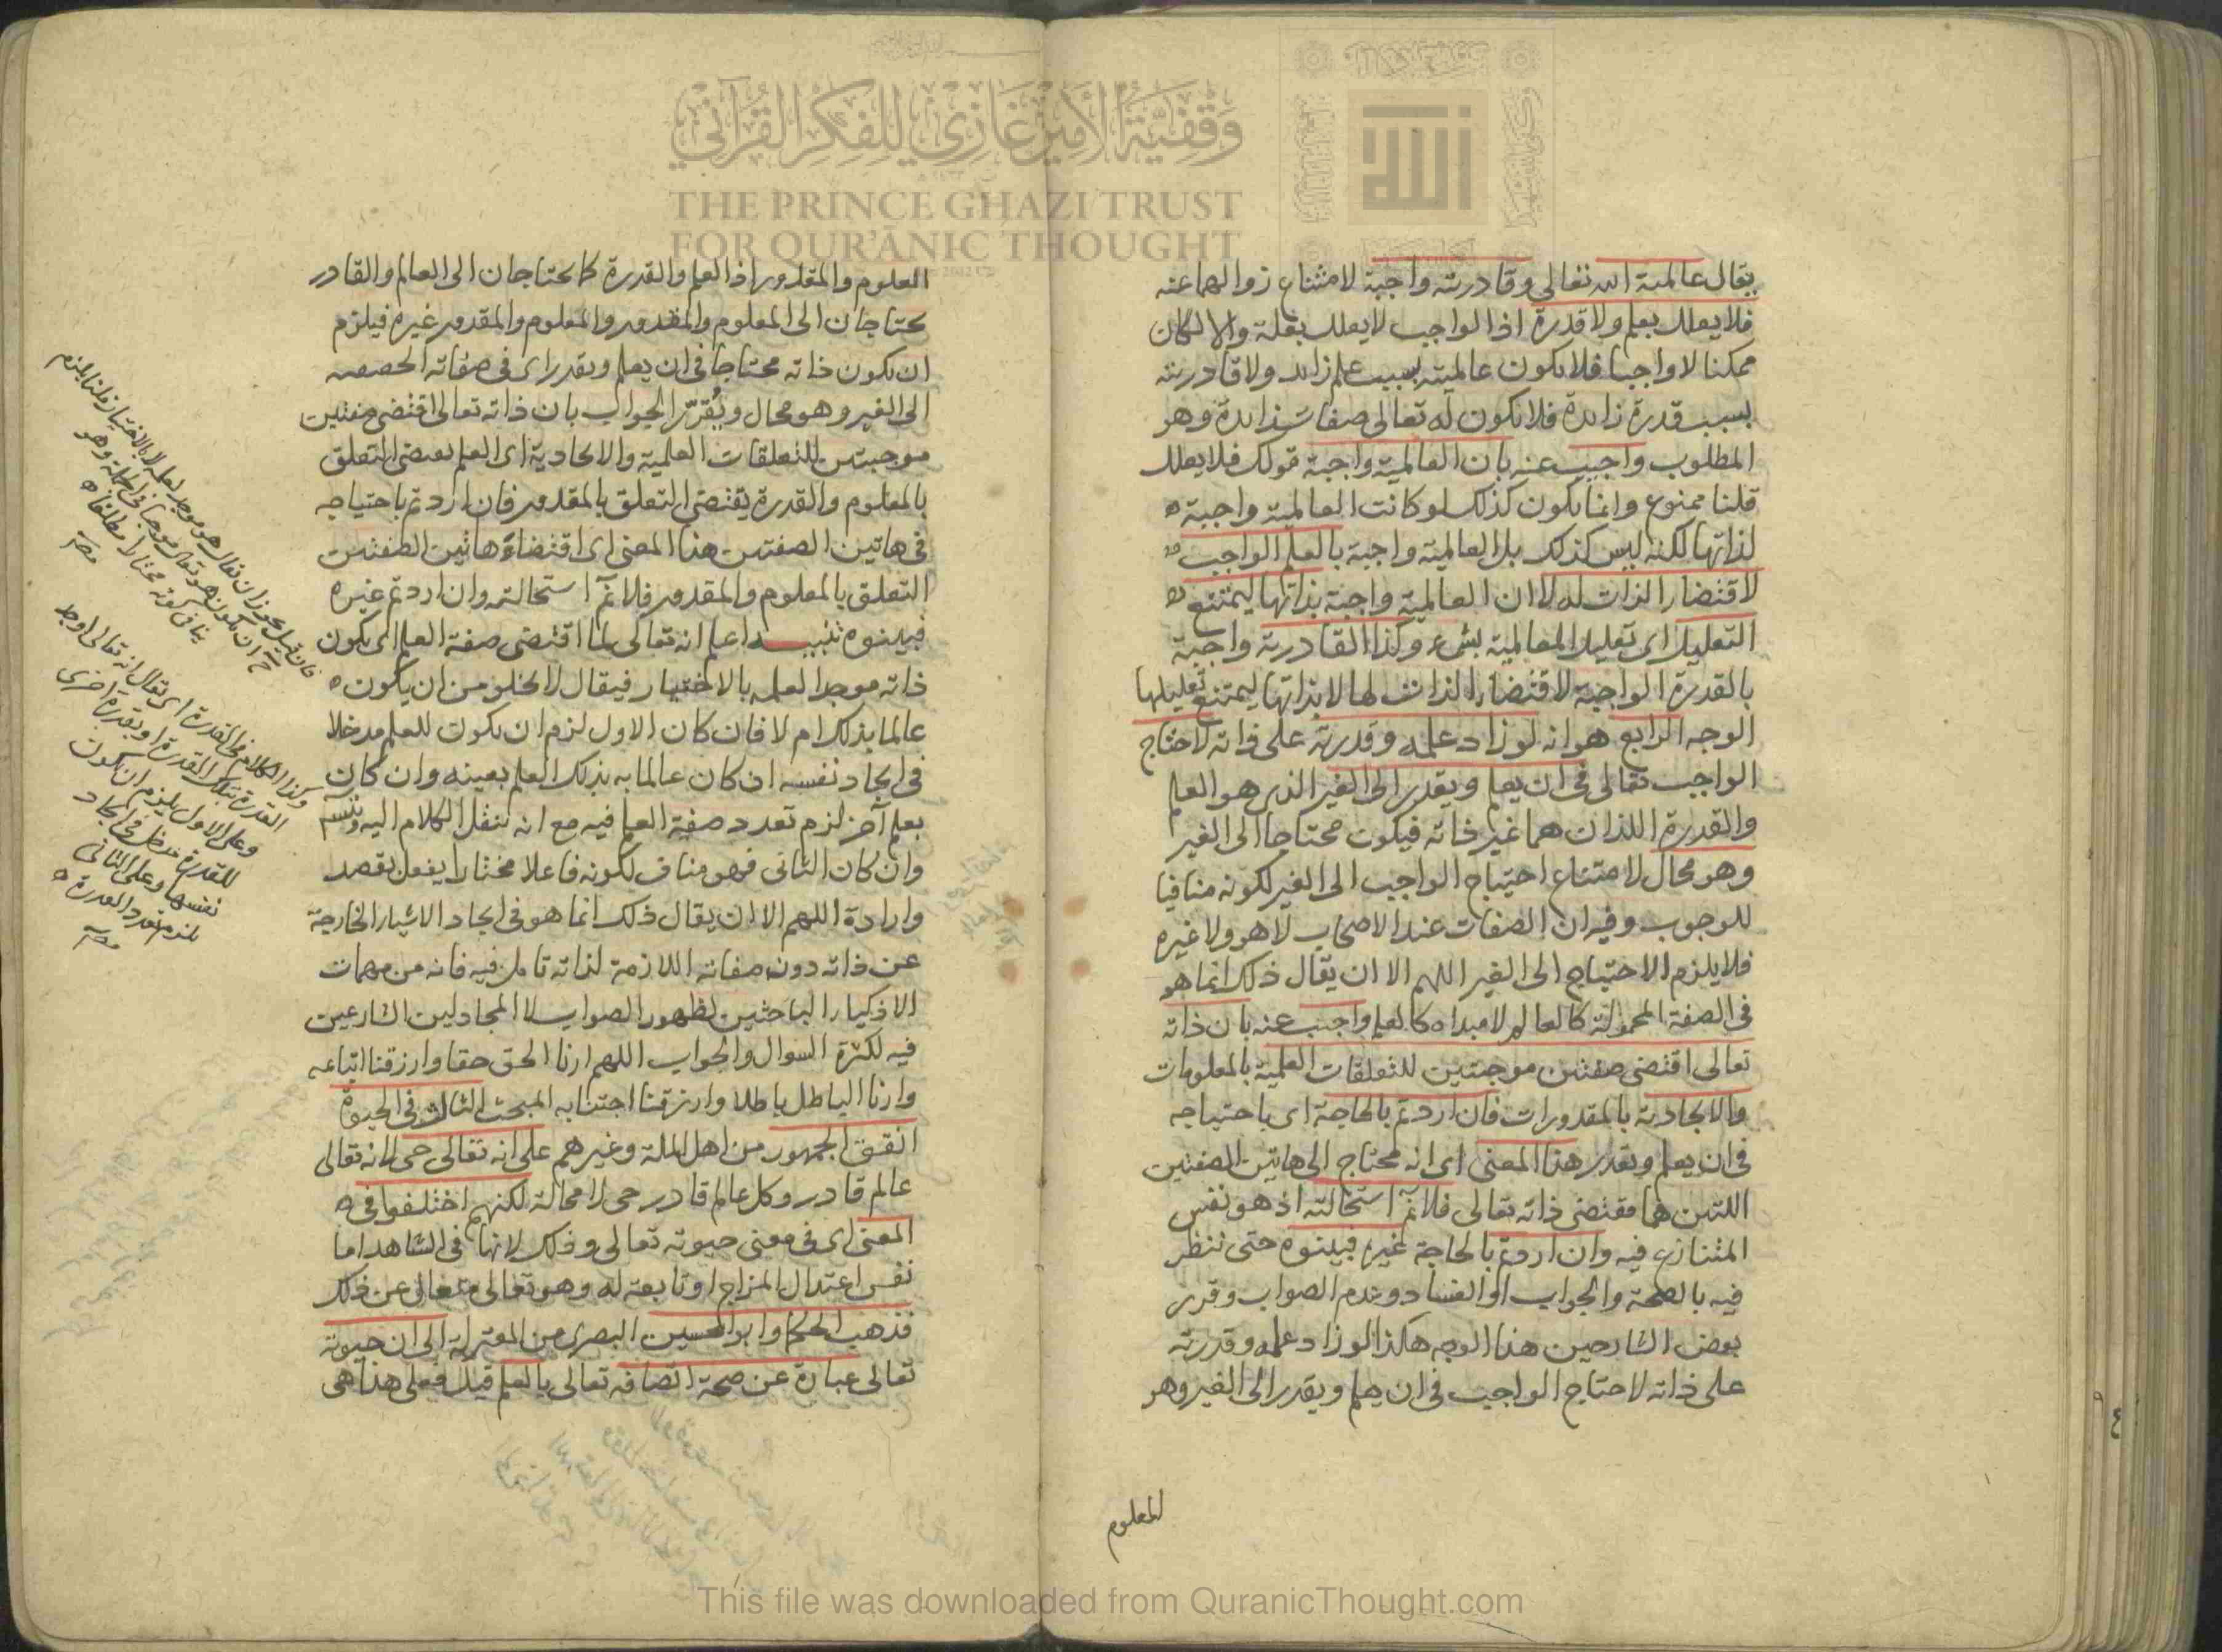 يقال عالمية الله تعالى وقادريته واجبة لامتناع زوالهما عنه
فلا يعلل بعلم ولا قدرة اذ الواجب لا يعلل بعلة والا لكان
ممكنا لا واجبا فلا يكون عالميته بسبب علم زايد ولا قادريته
بسبب قدرة زايدة فلا يكون له تعالى صفات زايدة وهو
المطلوب واجيب عنه بان العالمية واجبة قولك فلا يعلل
قلنا ممنوع وانما يكون كذلك لو كانت العالمية واجبة
لذاتها لكنه ليس كذلك بل العالمية واجبة بالعلم الواجب
لاقتضاء الذات له لا ان العالمية واجبة بذاتها ليمتنع
التعليل اى تعليل العالمية بشىء وكذا القادرية واجبة
بالقدرة الواجبة لاقتضاء الذات لها لا بذاتها ليمتنع تعليلها
الوجه الرابع هو انه لو زاد علمه وقدرته على ذاته لاحتاج
الواجب تعالى فى ان يعلم ويقدر الى الغير الذى هو العلم
والقدرة اللذان هما غير ذاته فيكون محتاجا الى الغير
وهو محال لامتناع احتياج الواجب الى الغير لكونه منافيا
للوجوب وفيه ان الصفات عند الاصحاب لا هو ولا غيره
فلا يلزم الاحتياج الى الغير اللهم الا ان يقال ذلك انما هو
فى الصفة المحمولة كالعالم لا مبداه كالعلم واجيب عنه بان ذاته
تعالى اقتضى صفتين موجبتين للتعلقات العلمية بالمعلومات
والايجادية بالمقدورات فان اردتم بالحاجة اى باحتياجه
فى ان يعلم ويقدر هذا المعنى اى انه محتاج الى هاتين الصفتين
اللتين هما مقتضى ذاته تعالى فلا نم استحالته اذ هو نفس
المتنازع فيه وان اردتم بالحاجة غيره فبينوه حتى ننظر
فيه بالصحة والجواب او الفساد وعدم الصواب وقرر
بعض الشارحين هذا الوجه هكذا لو زاد علمه وقدرته
على ذاته لاحتاج الواجب فى ان يعلم ويقدر الى الغير وهو
المعلوم
المعلوم والمقدور اذ العلم والقدرة كما يحتاجان الى العالم والقادر
يحتاجان الى المعلوم والمقدور والمعلوم والمقدور غيره فيلزم
ان يكون ذاته محتاجا فى ان يعلم ويقدر اى فى صفاته الحقيقية
الى الغير وهو محال ويقرّر الجواب بان ذاته تعالى اقتضى صفتين
موجبتين للتعلقات العلمية والايجادية اى العلم يقتضى التعلق
بالمعلوم والقدرة يقتضى التعلق بالمقدور فان اردتم باحتياجه
فى هاتين الصفتين هذا المعنى اى اقتضاء هاتين الصفتين
التعلق بالمعلوم والمقدور فلا نم استحالته وان اردتم غيره
فبينوه تنبيه اعلم انه تعالى لما اقتضى صفة العلم اى يكون
ذاته موجد العلمه بالاختيار فيقال لا يخلو من ان يكون
عالما بذلك ام لا فان كان الاول لزم ان يكون للعلم مدخلا
فى ايجاد نفسه ان كان عالما به بذلك العلم بعينه وان كان
بعلم آخر لزم تعدد صفة العلم فيه مع انه ننقل الكلام اليه ويتسلسل
وان كان الثانى فهو مناف لكونه فاعلا مختارا يفعل بقصد
وارادة اللهم الا ان يقال ذلك انما هو فى ايجاد الاشياء الخارجة
عن ذاته دون صفاته اللازمة لذاته تامل فيه فانه من مهمات
الاذكياء الباحثين لظهور الصواب لا المجادلين الشارعين
فيه لكثرة السوال والجواب اللهم ارنا الحق حقا وارزقنا اتباعه
وارنا الباطل باطلا وارزقنا اجتنابه المبحث الثالث فى الحيوة
اتفق الجمهور من اهل الملة وغيرهم على انه تعالى حى لانه تعالى
عالم قادر وكل عالم قادر حى لا محالة لكنهم اختلفوا فى
المعنى اى فى معنى حيوته تعالى وذلك لانها فى الشاهد اما
نفس اعتدال المزاج او تابعة له وهو تعالى متعال عن ذلك
فذهب الحكما وابو الحسين البصرى من المعتزلة الى ان حيوته
تعالى عبارة عن صحة اتصافه تعالى بالعلم قيل فعلى هذا هى
فان قيل يجوز ان يقال هو موجد لعلمه لا بالاختيار قلنا يلزم
ح ان يكون هو تعالى موجبا فى الجملة وهو
ينافى كونه مختارا مطلقا
وكذا الكلام فى القدرة اى يقال انه تعالى اوجد
القدرة بتلك القدرة او بقدرة اخرى
وعلى الاول يلزم ان يكون
للقدرة مدخل فى ايجاد
نفسها وعلى الثانى
يلزم تعدد القدرة
وقفية الأمير غازي للفكر القرآني
THE PRINCE GHAZI TRUST
FOR QUR'ĀNIC THOUGHT
This file was downloaded from QuranicThought.com